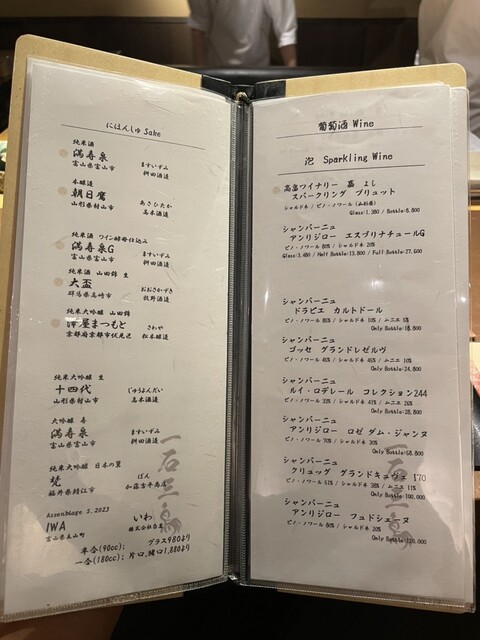 にほんしゅ Sake
純米酒
満寿泉 ますいずみ
富山県富山市 桝田酒造
本醸造
朝日鷹 あさひたか
山形県村山市 高木酒造
純米酒 ワイン酵母仕込み
満寿泉G ますいずみ
富山県富山市 桝田酒造
純米酒 山田錦 生
大盃 おおさかずき
群馬県高崎市 牧野酒造
純米大吟醸 山田錦
澤屋まつもと さわや
京都府京都市伏見区 松本酒造
純米大吟醸 生
十四代 じゅうよんだい
山形県村山市 高木酒造
大吟醸 寿
満寿泉 ますいずみ
富山県富山市 桝田酒造
純米大吟醸 日本の翼
梵 ぼん
福井県鯖江市 加藤吉平商店
Assemblage 3, 2023
IWA いわ
富山県立山町 株式会社白岩
半合(90cc): グラス980より
一合(180cc): 片口,猪口1,880より
一石三鳥
葡萄酒 Wine
泡 Sparkling Wine
高畠ワイナリー 嘉 よし
スパークリング ブリュット
シャルドネ / ピノ・ノワール (山形県)
Glass:1,380 / Bottle:6,800
シャンパーニュ
アンリジロー エスプリナチュールG
ピノ・ノワール 80% / シャルドネ 20%
Glass:3,480 / Half Bottle:13,800 / Full Bottle:27,600
シャンパーニュ
ドラピエ カルトドール
ピノ・ノワール 80% / シャルドネ 15% / ムニエ 5%
Only Bottle:18,800
シャンパーニュ
ゴッセ グランドレゼルヴ
ピノ・ノワール 45% / シャルドネ 45% / ムニエ 10%
Only Bottle:24,800
シャンパーニュ
ルイ・ロデレール コレクション244
ピノ・ノワール 33% / シャルドネ 41% / ムニエ 26%
Only Bottle:28,800
シャンパーニュ
アンリジロー ロゼ ダム・ジャンヌ
ピノ・ノワール 70% / シャルドネ 30%
Only Bottle:58,800
シャンパーニュ
クリュッグ グランドキュヴェ 170
ピノ・ノワール 51% / シャルドネ 38% / ムニエ 11%
Only Bottle:100,000
シャンパーニュ
アンリジロー フュドシェーヌ
ピノ・ノワール 80% / シャルドネ 20%
Only Bottle:120,000
一石三鳥